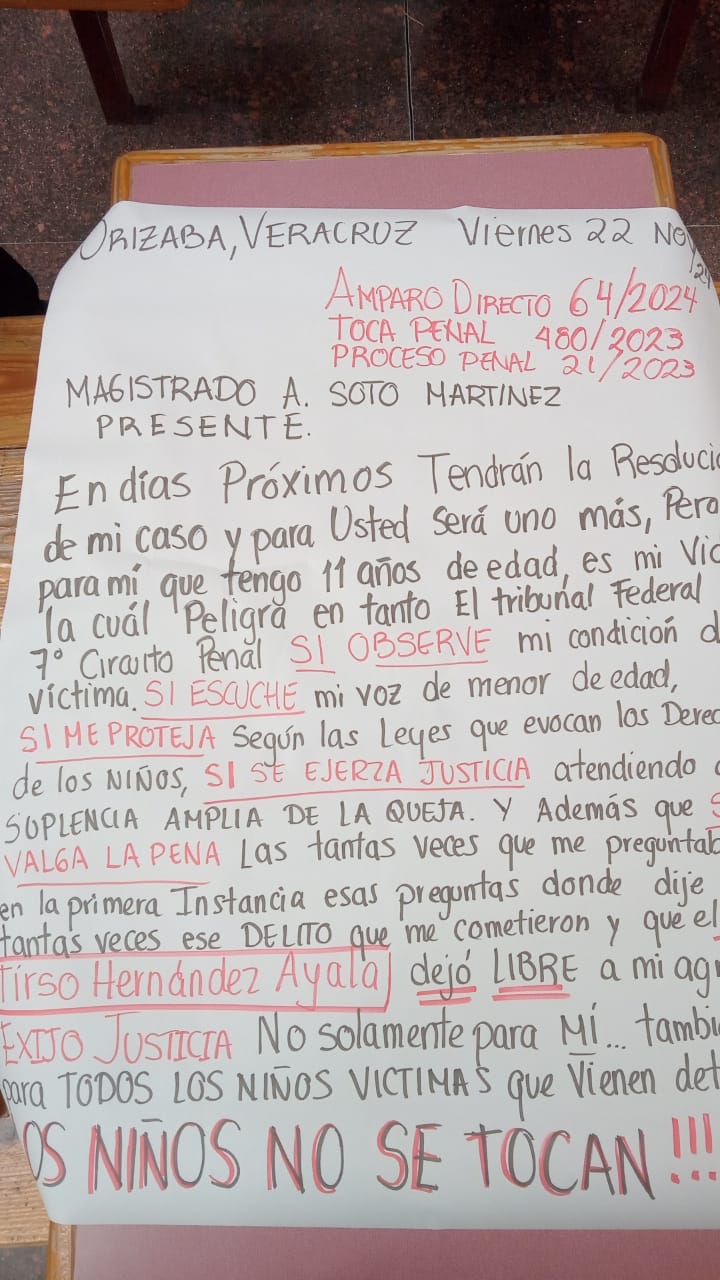 ORIZABA, VERACRUZ Viernes 22 NOV/24
AMPARO DIRECTO 64/2024
TOCA PENAL 480/2023
PROCESO PENAL 21/2023
MAGISTRADO A. SOTO MARTINEZ
PRESENTE.
En días Próximos Tendrán la Resolució
de mi caso y para Usted Será uno más, Pero
para mí que tengo 11 años de edad, es mi Vid
la cuál Peligra en tanto El tribunal Federal
7° Circuito Penal SI OBSERVE mi condición d
víctima. SI ESCUCHE mi voz de menor de edad,
SI ME PROTEJA Según las Leyes que evocan los Derec
de los NIÑOS, SI SE EJERZA JUSTICIA atendiendo
SUPLENCIA AMPLIA DE LA QUEJA. Y Además que S
VALGA LA PENA Las tantas veces que me preguntab
en la primera Instancia esas preguntas donde dije
tantas veces ese DELITO que me cometieron y que el
Tirso Hernández Ayala dejó LIBRE a mi agr
EXIJO JUSTICIA No solamente para MÍ... tambi
para TODOS LOS NIÑOS VICTIMAS que Vienen det
OS NIÑOS NO SE TOCAN!!!